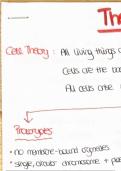 Th
Cell Theory : All living things a
Cells are the ba
All cells arise
Prokaryotes
• no membrane-bound organelles
• single, circular chromosome + pla